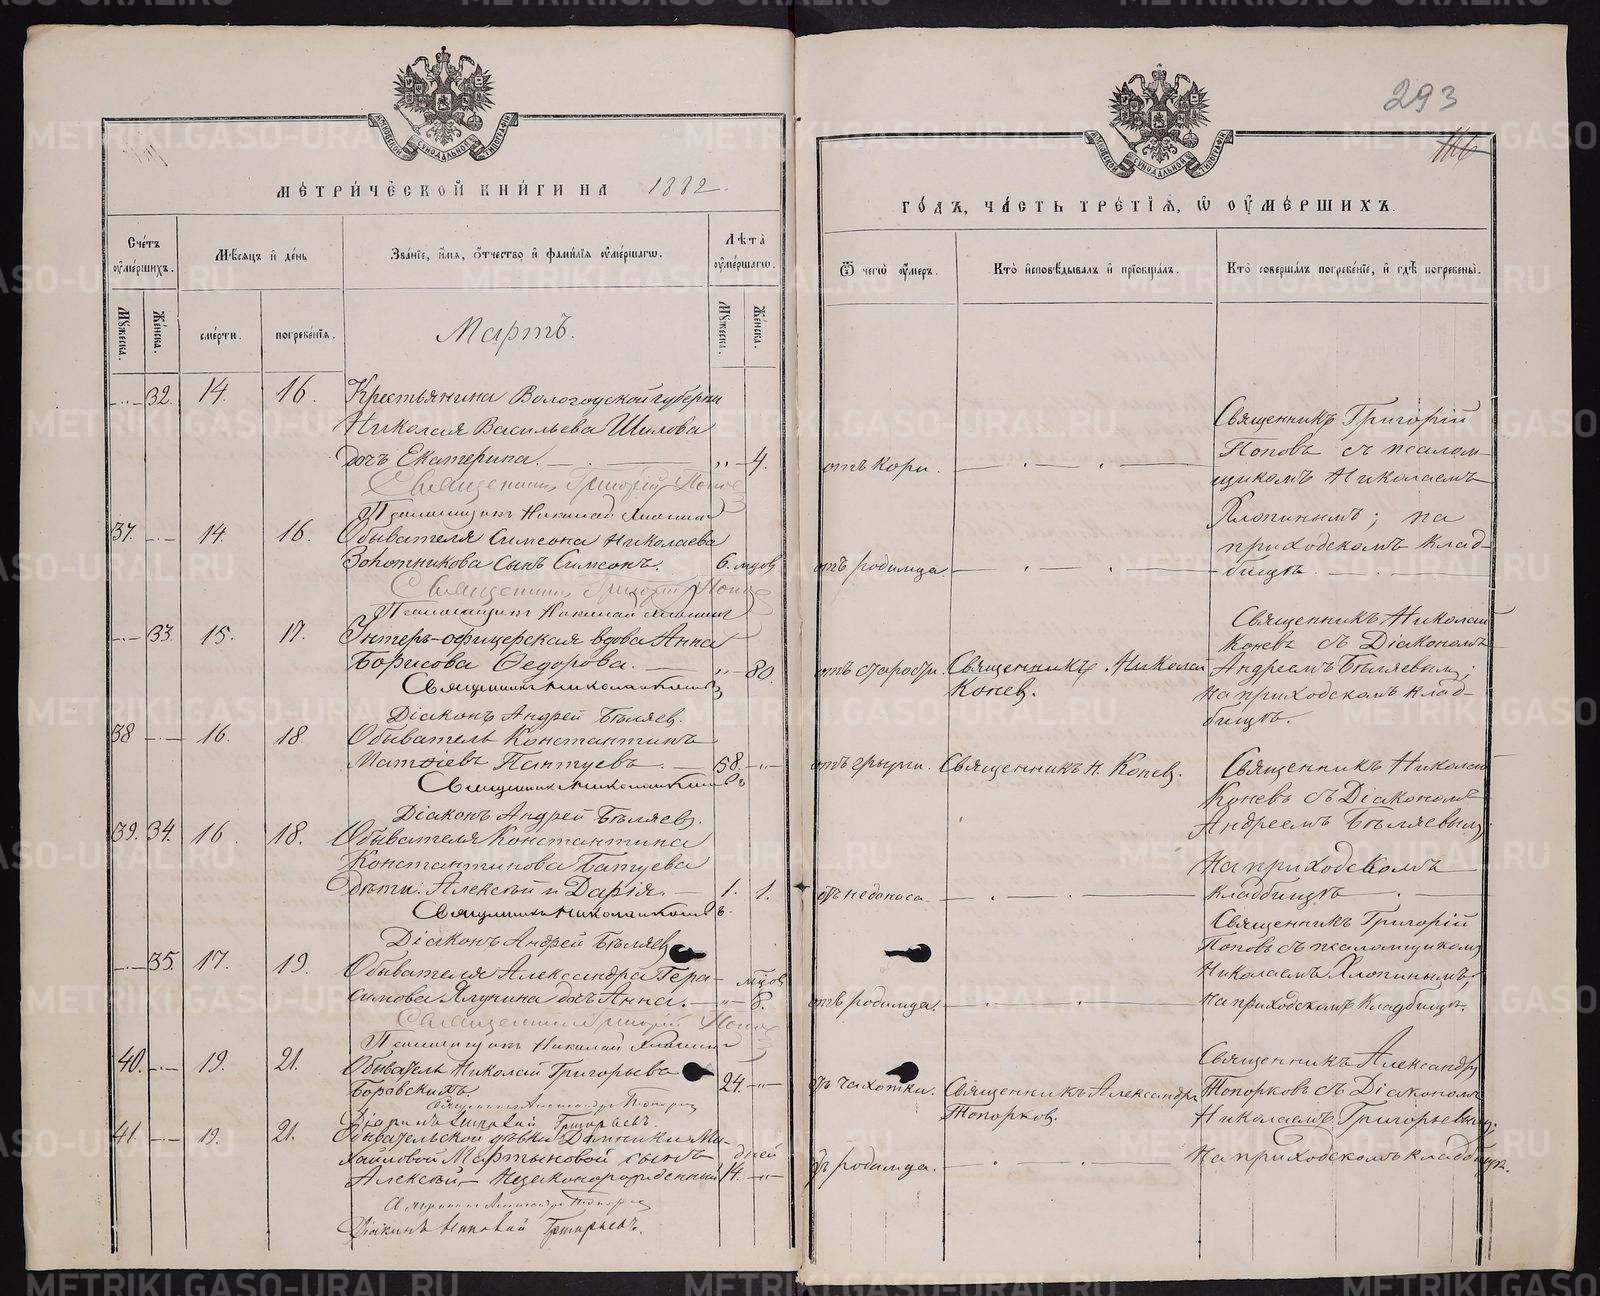 МЕТРИЧЕСКОЙ КНИГИ НА 1882.
Счетъ умершихъ.
Мѣсяцъ и день
Званіе, имя, отчество и фамилія умершагѡ.
Лѣта умершагѡ.
Мужеска.
Женска.
смерти.
погребенія.
Мартъ.
Мужеска.
Женска.
32. 14. 16. Крестьянина Вологодской губерніи
Николая Васильева Шилова
дочь Екатерина. 4.
Священникъ Григорій Поповъ
Псаломщикъ Николай Хлопинъ
37. 14. 16. Обывателя Симеона Николаева
сынъ Симеонъ. 6. мцовъ
Священникъ Григорій Поповъ
Псаломщикъ Николай Хлопинъ
33. 15. 17. Унтеръ-офицерская вдова Анна
Борисова Ѳедорова. 80.
Священникъ Николай Коневъ
Діаконъ Андрей Бѣляевъ.
38 16. 18. Обыватель Константинъ
Матѳіевъ Пантуевъ. 58.
Священникъ Николай Коневъ
Діаконъ Андрей Бѣляевъ.
39. 34. 16. 18. Обывателя Константина
Константинова Батуева
дѣти: Алексѣй и Дарія. 1. 1.
Священникъ Николай Коневъ.
Діаконъ Андрей Бѣляевъ
35. 17. 19. Обывателя Александра Гера-
симова Ялунина дочь Анна. мцовъ 8.
Священникъ Григорій Поповъ
Псаломщикъ Николай Хлопинъ
40. 19. 21. Обыватель Николай Григорьевъ
Боровскихъ. 24.
Священникъ Александръ Топорковъ
Діаконъ Николай Григорьевъ.
41. 19. 21. Обывательской дѣвки Домники Ми-
хайловой Мартыновой сынъ дней
Алексѣй – Незаконорожденный 14.
Священникъ Александръ Топорковъ
Діаконъ Николай Григорьевъ.
293
ГОДЪ, ЧАСТЬ ТРЕТІЯ, Ѡ УМЕРШИХЪ.
Ѿ чегѡ умеръ.
Кто исповѣдывалъ и пріобщалъ.
Кто совершалъ погребеніе, и гдѣ погребены.
отъ кори.
Священникъ Григорій
Поповъ съ псалом-
щикомъ Николаемъ
Хлопинымъ; на
приходскомъ клад-
бищѣ.
отъ родимца.
отъ старости. Священникъ Николай
Коневъ.
Священникъ Николай
Коневъ съ Діакономъ
Андреемъ Бѣляевымъ;
на приходскомъ клад-
бищѣ.
Священникъ Н. Коневъ.
Священникъ Николай
Коневъ съ Діакономъ
Андреемъ Бѣляевымъ;
на приходскомъ
кладбищѣ
отъ недоноса.
Священникъ Григорій
Поповъ съ псаломщикомъ
Николаемъ Хлопинымъ;
на приходскомъ кладбищѣ.
отъ родимца.
отъ чахотки. Священникъ Александръ
Топорковъ.
Священникъ Александръ
Топорковъ съ Діакономъ
Николаемъ Григорьевымъ;
на приходскомъ кладбищѣ.
отъ родимца.
METRIKI.GASO-URAL.RU